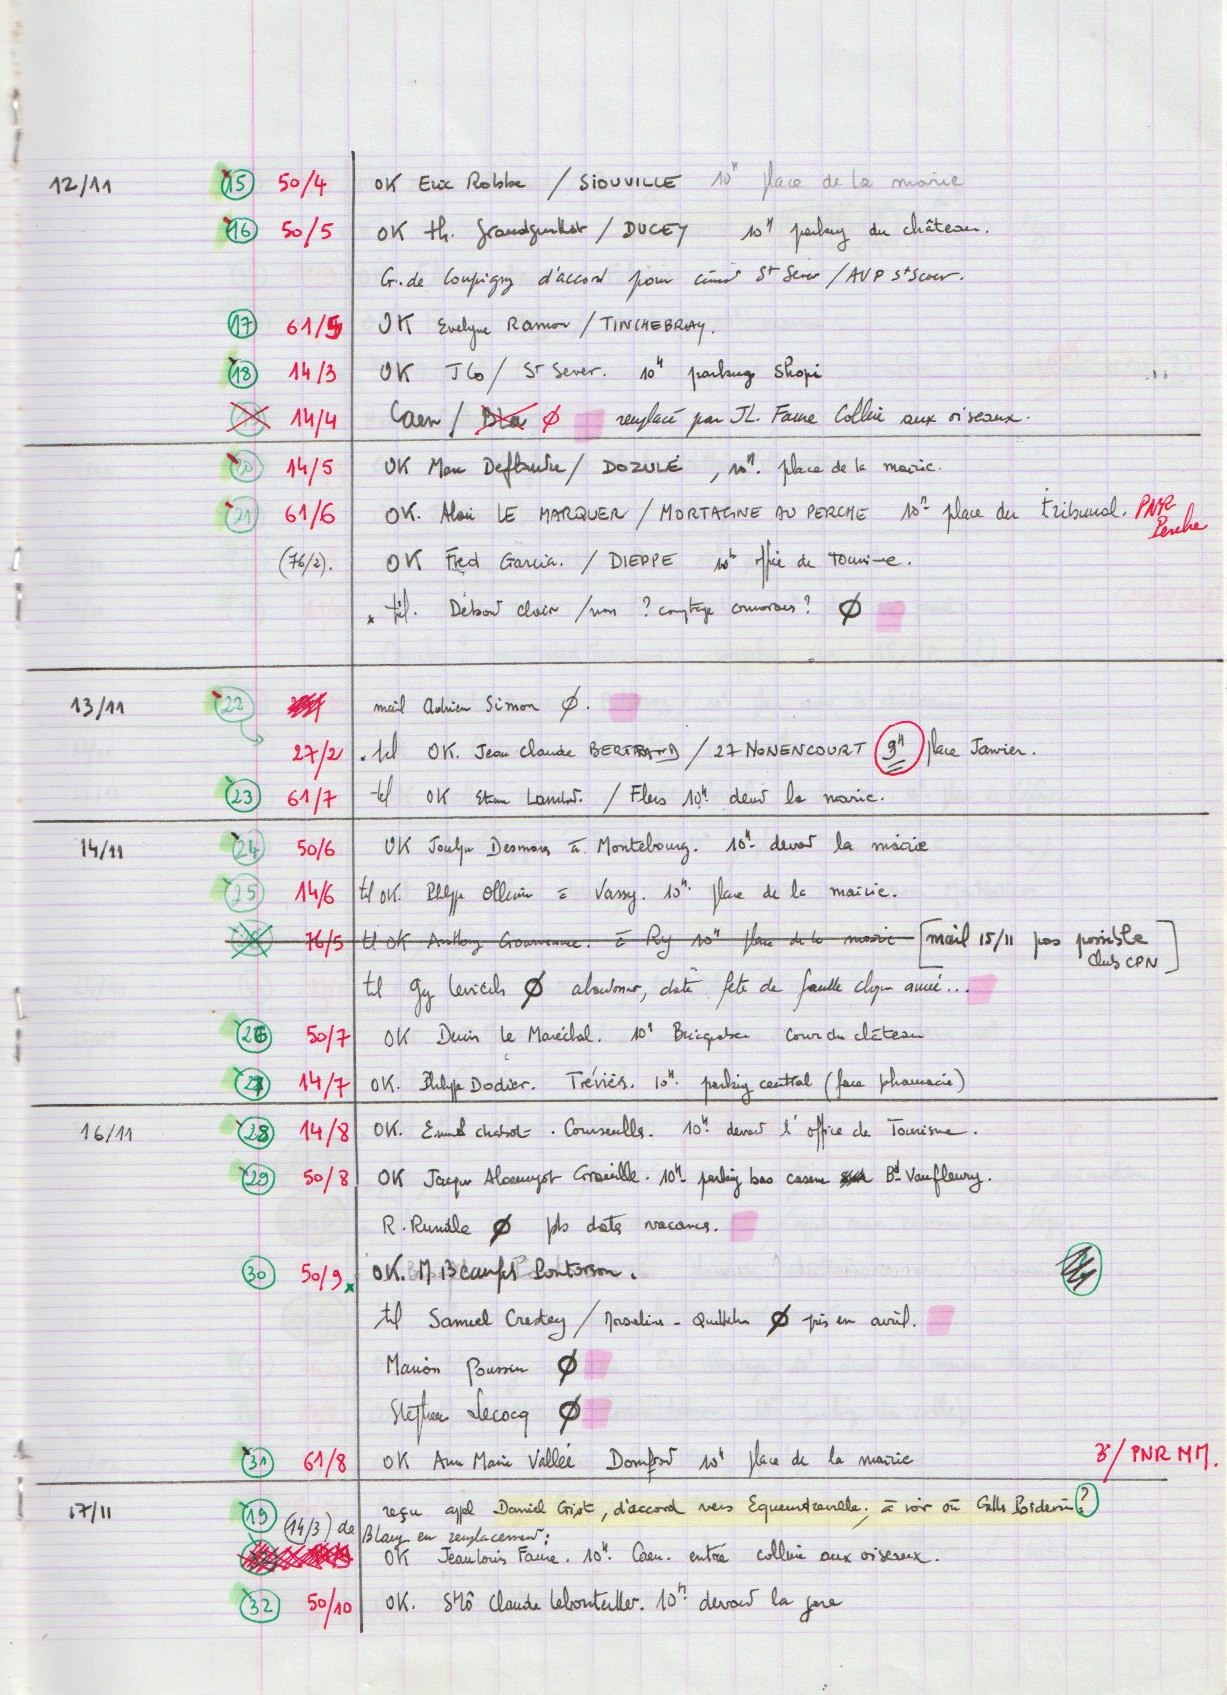 12/11 15 50/4 OK Eric Robbe / SIOUVILLE 10H place de la mairie
16 50/5 OK th. / DUCEY 10H parking du château.
G. de Coupigny d'accord pour St Sever / AVP St Sever.
17 61/5 OK Evelyne Ramon / TINCHEBRAY.
18 14/3 OK JLo / St Sever. 10H parking Shopi
14/4 Caen / Ø remplacé par JL. Faure Colline aux oiseaux.
20 14/5 OK Marc Deflandre / DOZULÉ, 10H. place de la mairie.
21 61/6 OK. Alain LE MARQUER / MORTAGNE AU PERCHE 10H place du tribunal. PNR Perche
(76/2). OK Fred Garcia. / DIEPPE 10H office de Tourisme.
tél. Clair / ? comptage ? Ø
13/11 22 mail Adrien Simon Ø.
27/2 . tel OK. Jean Claude BERTRAND / 27 NONENCOURT 9H place Janvier.
23 61/7 tel OK / Flers 10H. devant la mairie.
14/11 24 50/6 OK Jocelyn Desmares à Montebourg. 10H devant la mairie
25 14/6 tél OK. Philippe à Vassy. 10H. place de la mairie.
76/5 tl OK Anthony à Ry 10H place de la mairie [mail 15/11 pas possible
Club CPN]
tél Ø abandonner, date fête de famille chaque année...
26 50/7 OK Denis Le Maréchal. 10H Bricquebec cour du château
27 14/7 OK. Philippe Dodier. Trévières. 10H. parking central (face pharmacie)
16/11 28 14/8 OK. chabot. Courseulles. 10H devant l'office de Tourisme.
29 50/8 OK Jacques Granville. 10H parking bas caserne Bd Vaufleury.
R. Rundle Ø pb date vacances.
30 50/9 OK. M Pontorson.
tél Samuel Crestey / Ø pris en avril.
Manon Poussin Ø
Stéphane Lecocq Ø
31 61/8 OK Anne Marie Vallée Domfront 10H place de la mairie
3/ PNR MM.
17/11 19 reçu appel Daniel, d'accord vers Equeurdreville, à voir où Gilles ?
(14/3) de Blangy en remplacement:
OK Jean Louis Faure. 10H. Caen. entrée colline aux oiseaux.
32 50/10 OK. St Lô Claude Lebouteiller. 10H devant la gare